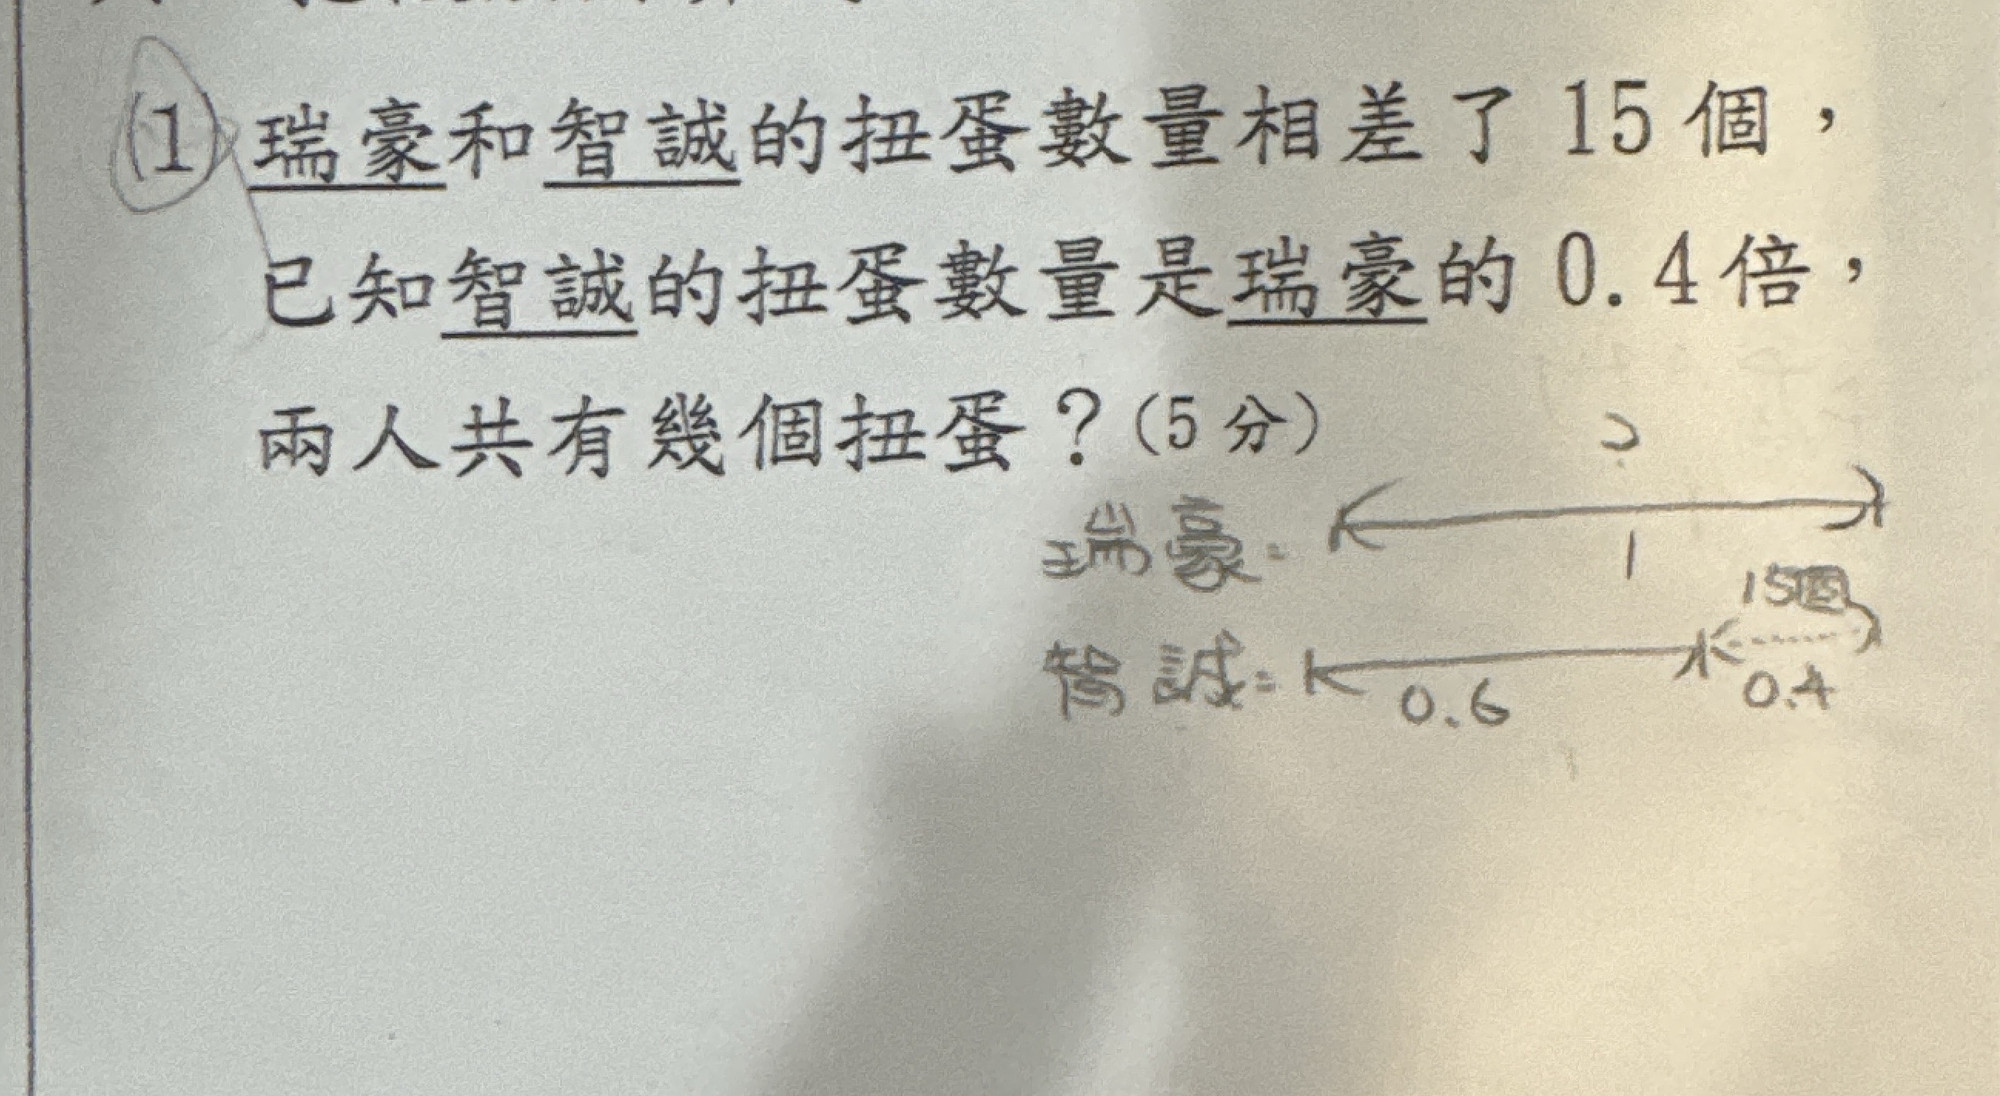 (1) 瑞豪和智誠的扭蛋數量相差了15個，
已知智誠的扭蛋數量是瑞豪的0.4倍，
兩人共有幾個扭蛋？(5分)
?
瑞豪：
1
15個
智誠：
0.6
0.4